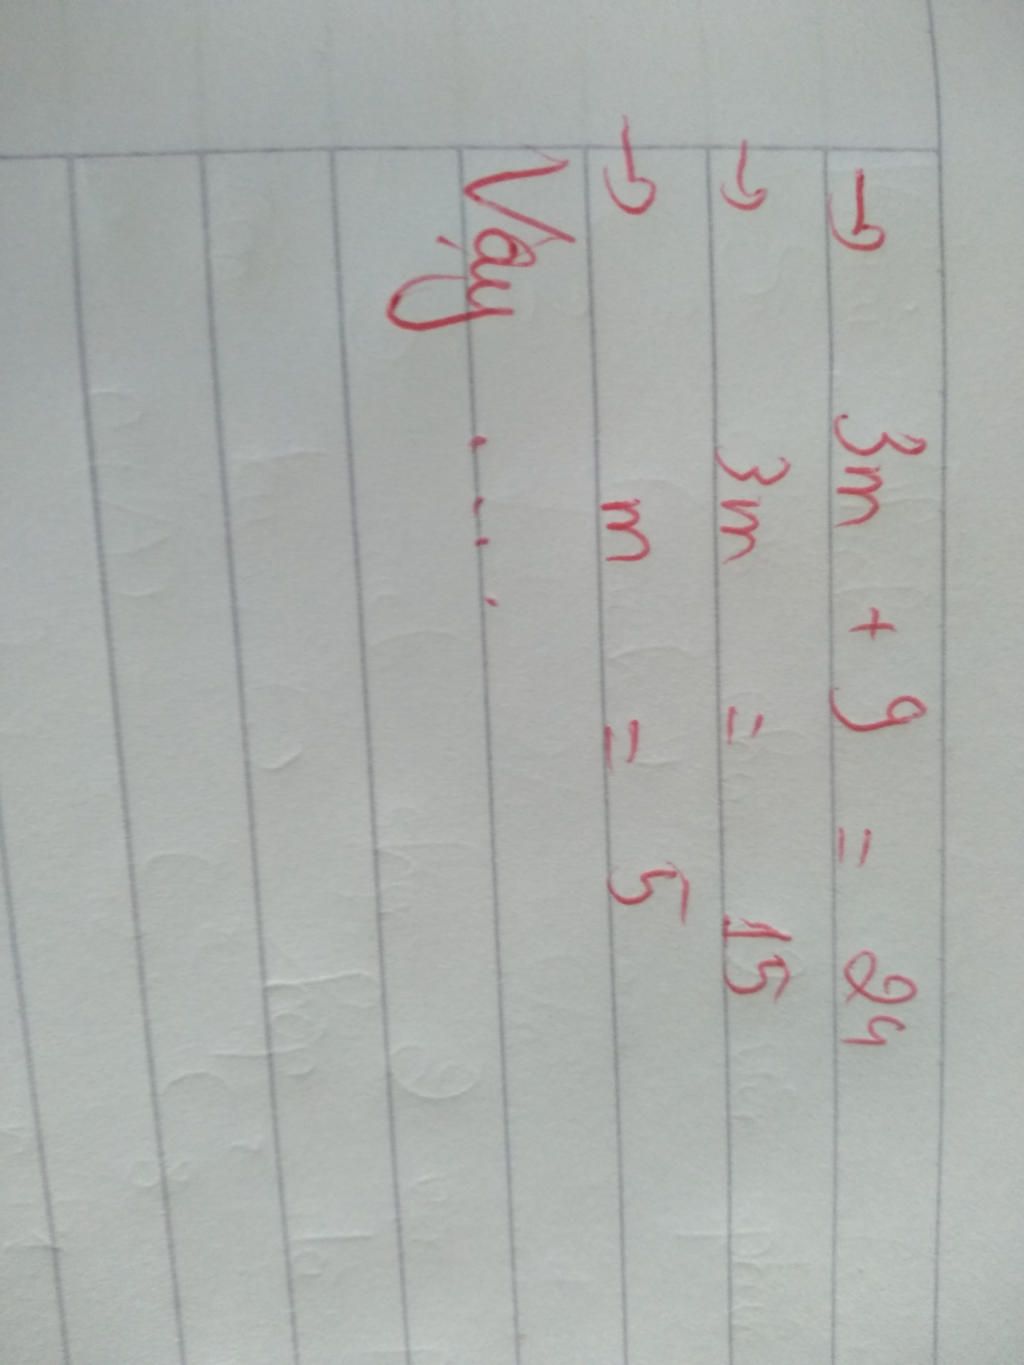 → 3m + 9 = 24
→ 3m = 15
→ m = 5
Vậy ....